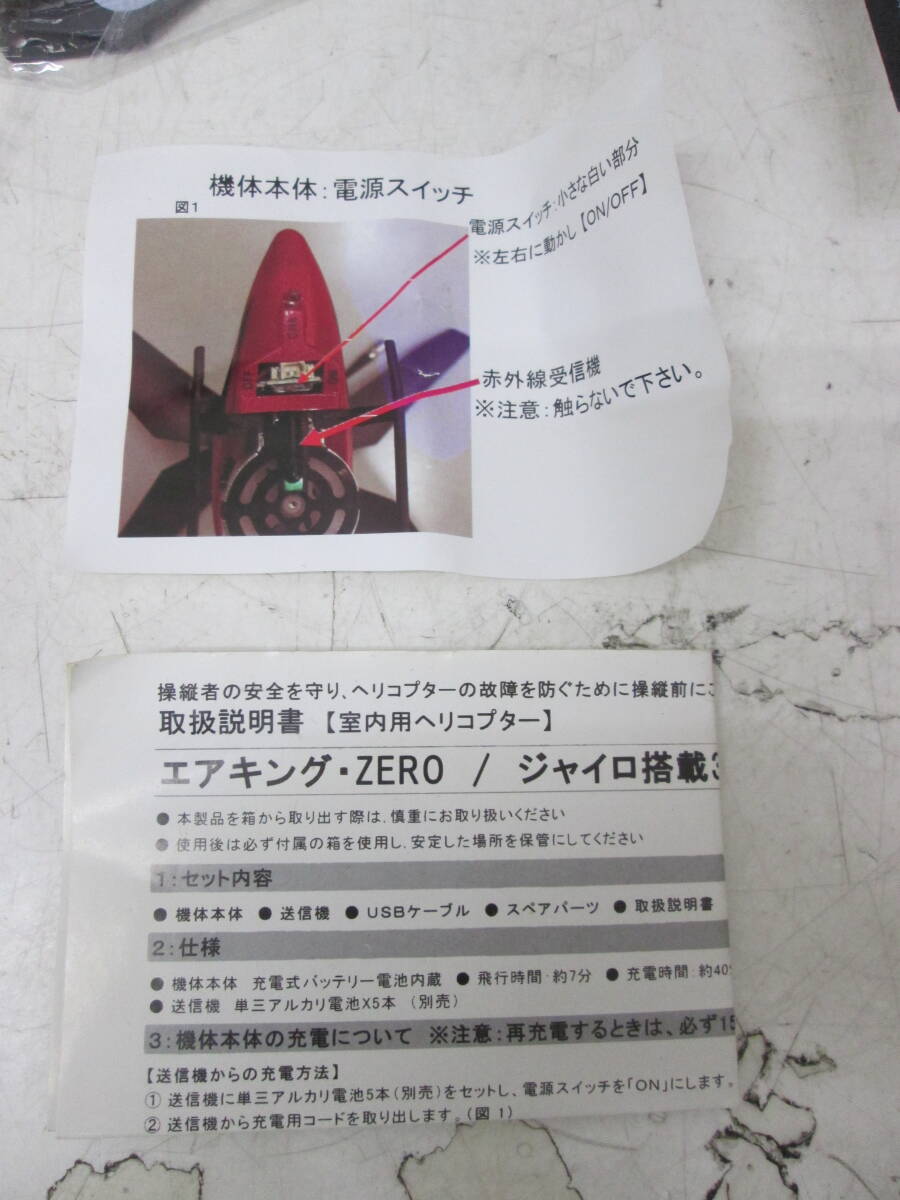 機体本体：電源スイッチ
図1
電源スイッチ：小さな白い部分
※左右に動かし【ON/OFF】
OFF
赤外線受信機
※注意：触らないで下さい。
操縦者の安全を守り、ヘリコプターの故障を防ぐために操縦前に
取扱説明書 【室内用ヘリコプター】
エアキング・ZERO / ジャイロ搭載3
● 本製品を箱から取り出す際は、慎重にお取り扱いください
● 使用後は必ず付属の箱を使用し、安定した場所を保管にしてください
1：セット内容
● 機体本体 ● 送信機 ● USBケーブル ● スペアパーツ ● 取扱説明書
2：仕様
● 機体本体 充電式バッテリー電池内蔵 ● 飛行時間：約7分 ● 充電時間：約40
● 送信機 単三アルカリ電池X5本 （別売）
3：機体本体の充電について ※注意：再充電するときは、必ず15
【送信機からの充電方法】
① 送信機に単三アルカリ電池5本（別売）をセットし、電源スイッチを「ON」にします。
② 送信機から充電用コードを取り出します。（図 1）